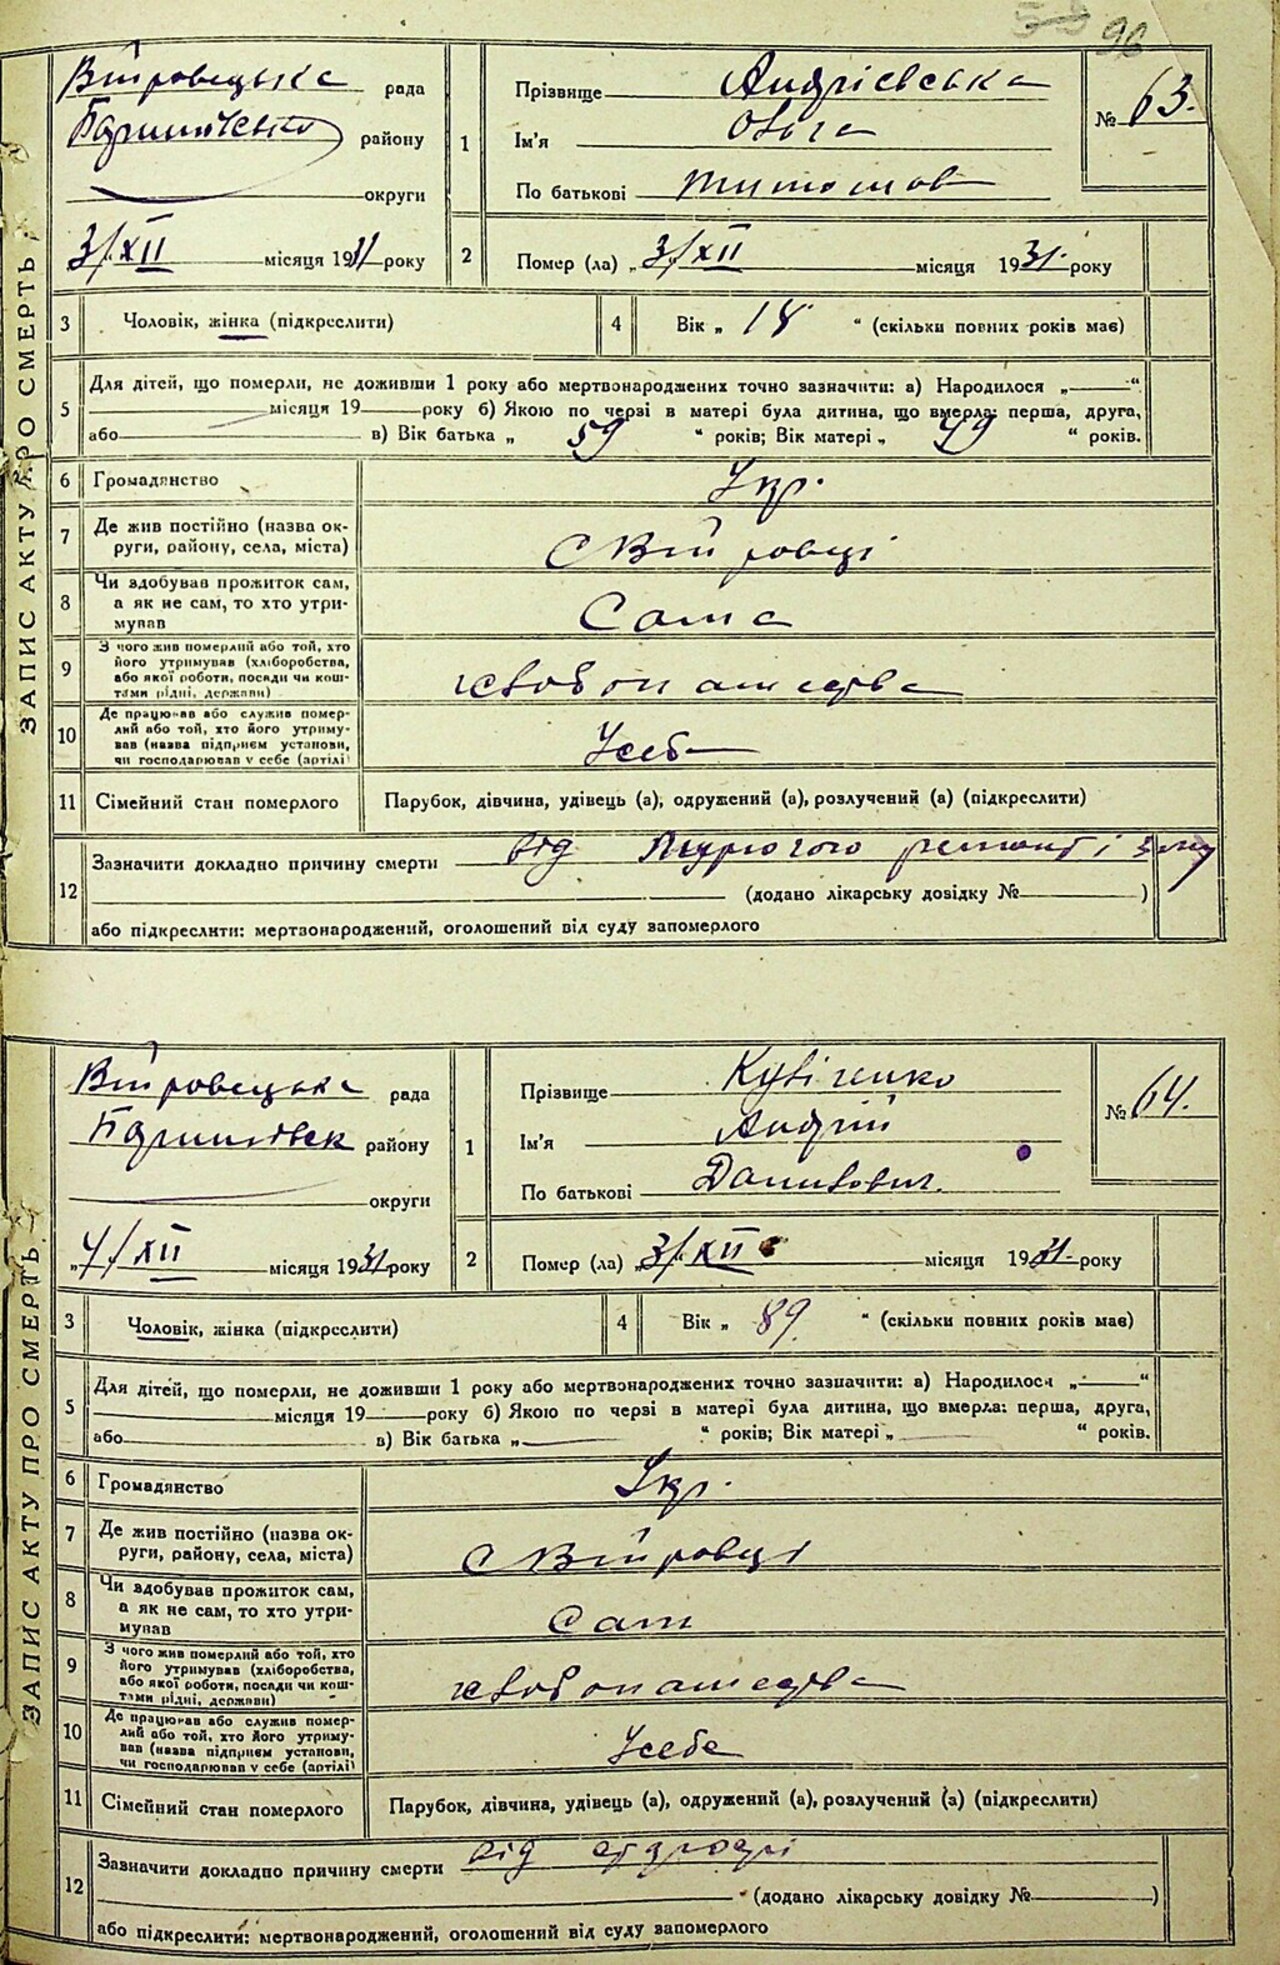 96
ЗАПИС АКТУ ПРО СМЕРТЬ
Війтовецька рада
району
округи
3/XII місяця 1931 року
1
Прізвище Андрієвська
Ім'я Ольга
По батькові
№ 63.
2
Помер (ла) „ 3/XII місяця 1931. року
3
Чоловік, жінка (підкреслити)
4
Вік „ 18 “ (скільки повних років має)
5
Для дітей, що померли, не доживши 1 року або мертвонароджених точно зазначити: а) Народилося „ “
місяця 19 року б) Якою по черзі в матері була дитина, що вмерла: перша, друга,
або в) Вік батька „ 59 “ років; Вік матері „ 49 “ років.
6
Громадянство
Укр.
7
Де жив постійно (назва ок-
руги, району, села, міста)
8
Чи здобував прожиток сам,
а як не сам, то хто утри-
мував
Сама
9
З чого жив померлий або той, хто
його утримував (хліборобства,
або якої роботи, посади чи кош-
тами рідні, держави)
10
Де працював або служив помер-
лий або той, хто його утриму-
вав (назва підприєм установи,
чи господарював у себе (артілі)
У себе
11
Сімейний стан померлого
Парубок, дівчина, удівець (а), одружений (а), розлучений (а) (підкреслити)
12
Зазначити докладно причину смерти від
(додано лікарську довідку № )
або підкреслити: мертвонароджений, оголошений від суду запомерлого
ЗАПИС АКТУ ПРО СМЕРТЬ
рада
району
округи
„4/XII місяця 1931 року
1
Прізвище
Ім'я Андрій
По батькові Данилович.
№ 64.
2
Помер (ла) „ 3/XII місяця 1931. року
3
Чоловік, жінка (підкреслити)
4
Вік „ 89. “ (скільки повних років має)
5
Для дітей, що померли, не доживши 1 року або мертвонароджених точно зазначити: а) Народилося „ “
місяця 19 року б) Якою по черзі в матері була дитина, що вмерла: перша, друга,
або в) Вік батька „ “ років; Вік матері „ “ років.
6
Громадянство
Укр.
7
Де жив постійно (назва ок-
руги, району, села, міста)
8
Чи здобував прожиток сам,
а як не сам, то хто утри-
мував
Сам
9
З чого жив померлий або той, хто
його утримував (хліборобства,
або якої роботи, посади чи кош-
тами рідні, держави)
10
Де працював або служив помер-
лий або той, хто його утриму-
вав (назва підприєм установи,
чи господарював у себе (артілі)
У себе
11
Сімейний стан померлого
Парубок, дівчина, удівець (а), одружений (а), розлучений (а) (підкреслити)
12
Зазначити докладно причину смерти від
(додано лікарську довідку № )
або підкреслити: мертвонароджений, оголошений від суду запомерлого